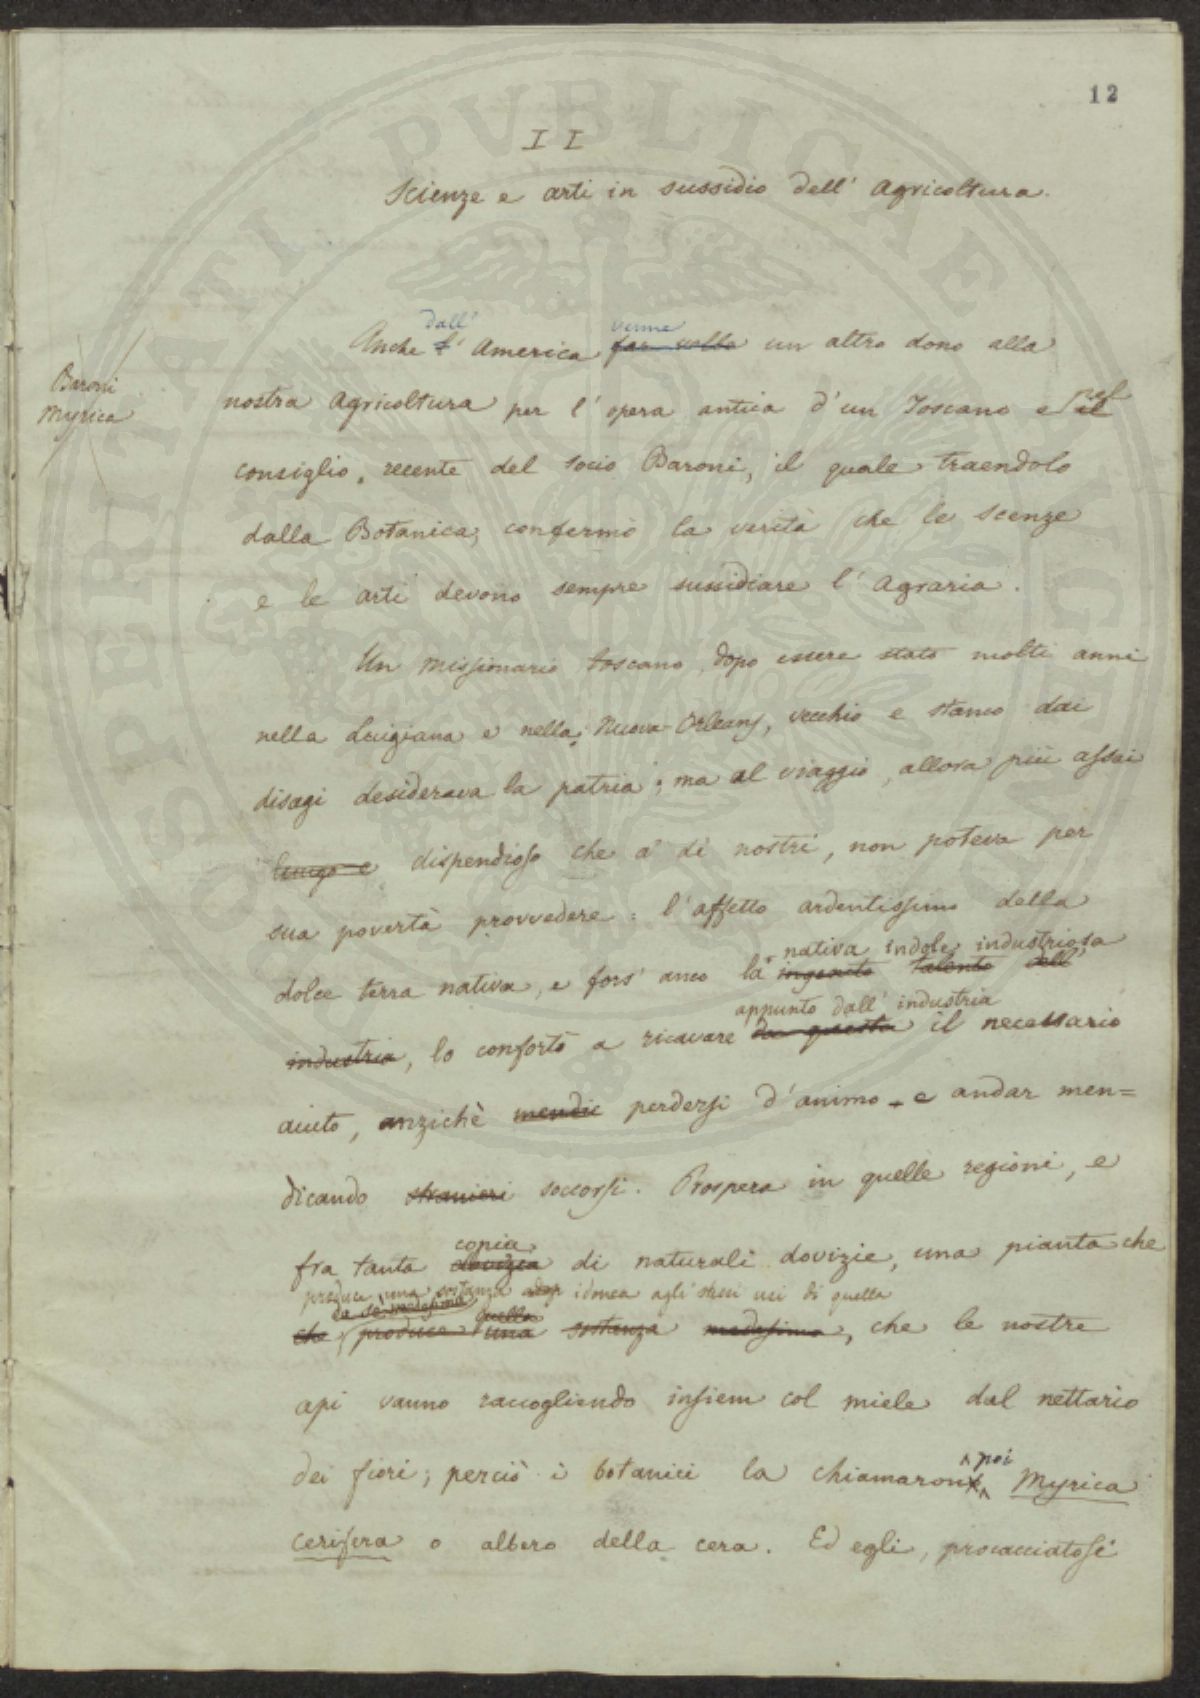 12
II
Scienze e arti in sussidio dell' Agricoltura.
dall' venne
Anche l' America far volle un altro dono alla
Baroni
Myrica
nostra Agricoltura per l' opera antica d' un Toscano e pel il
consiglio, recente del socio Baroni, il quale traendolo
dalla Botanica, confermò la verità che le scenze
e le arti devono sempre sussidiare l' Agraria.
Un missionario toscano, dopo essere stato molti anni
nella Luigiana e nella Nuova-Orleans, vecchio e stanco dai
disagi desiderava la patria; ma al viaggio, allora più assai
lungo e dispendioso che a' dì nostri, non poteva per
sua povertà provvedere: l' affetto ardentissimo della
nativa indole industriosa
dolce terra nativa, e fors' anco la ingenito talento dell'
appunto dall' industria
industria, lo confortò a ricavare da questa il necessario
aiuto, anzichè mendic perdersi d' animo e andar men=
dicando stranieri soccorsi. Prospera in quelle regioni, e
copia
fra tanta dovizia di naturali dovizie, una pianta che
produce una sostanza adop idonea agli stessi usi di quella
da sè medesima quella
che produce una sostanza medesima, che le nostre
api vanno raccogliendo insiem col miele dal nettario
poi
dei fiori; perciò i botanici la chiamaron Myrica
cerifera o albero della cera. Ed egli, procacciatosi
PUBLICAE
PROSPERITATI